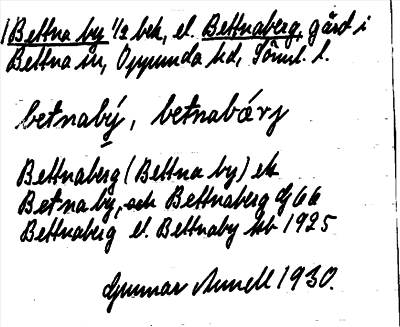 1 Bettna by 1/2 bek, el. Bettnaberg, gård i
Bettna sn, Oppunda hd, Söml. l.
betnabý, betnabǽrj
Bettnaberg (Bettna by) ek
Betna by, och Bettnaberg dj 66
Bettnaberg el. Bettnaby kb 1925
Gunnar Annell 1930.